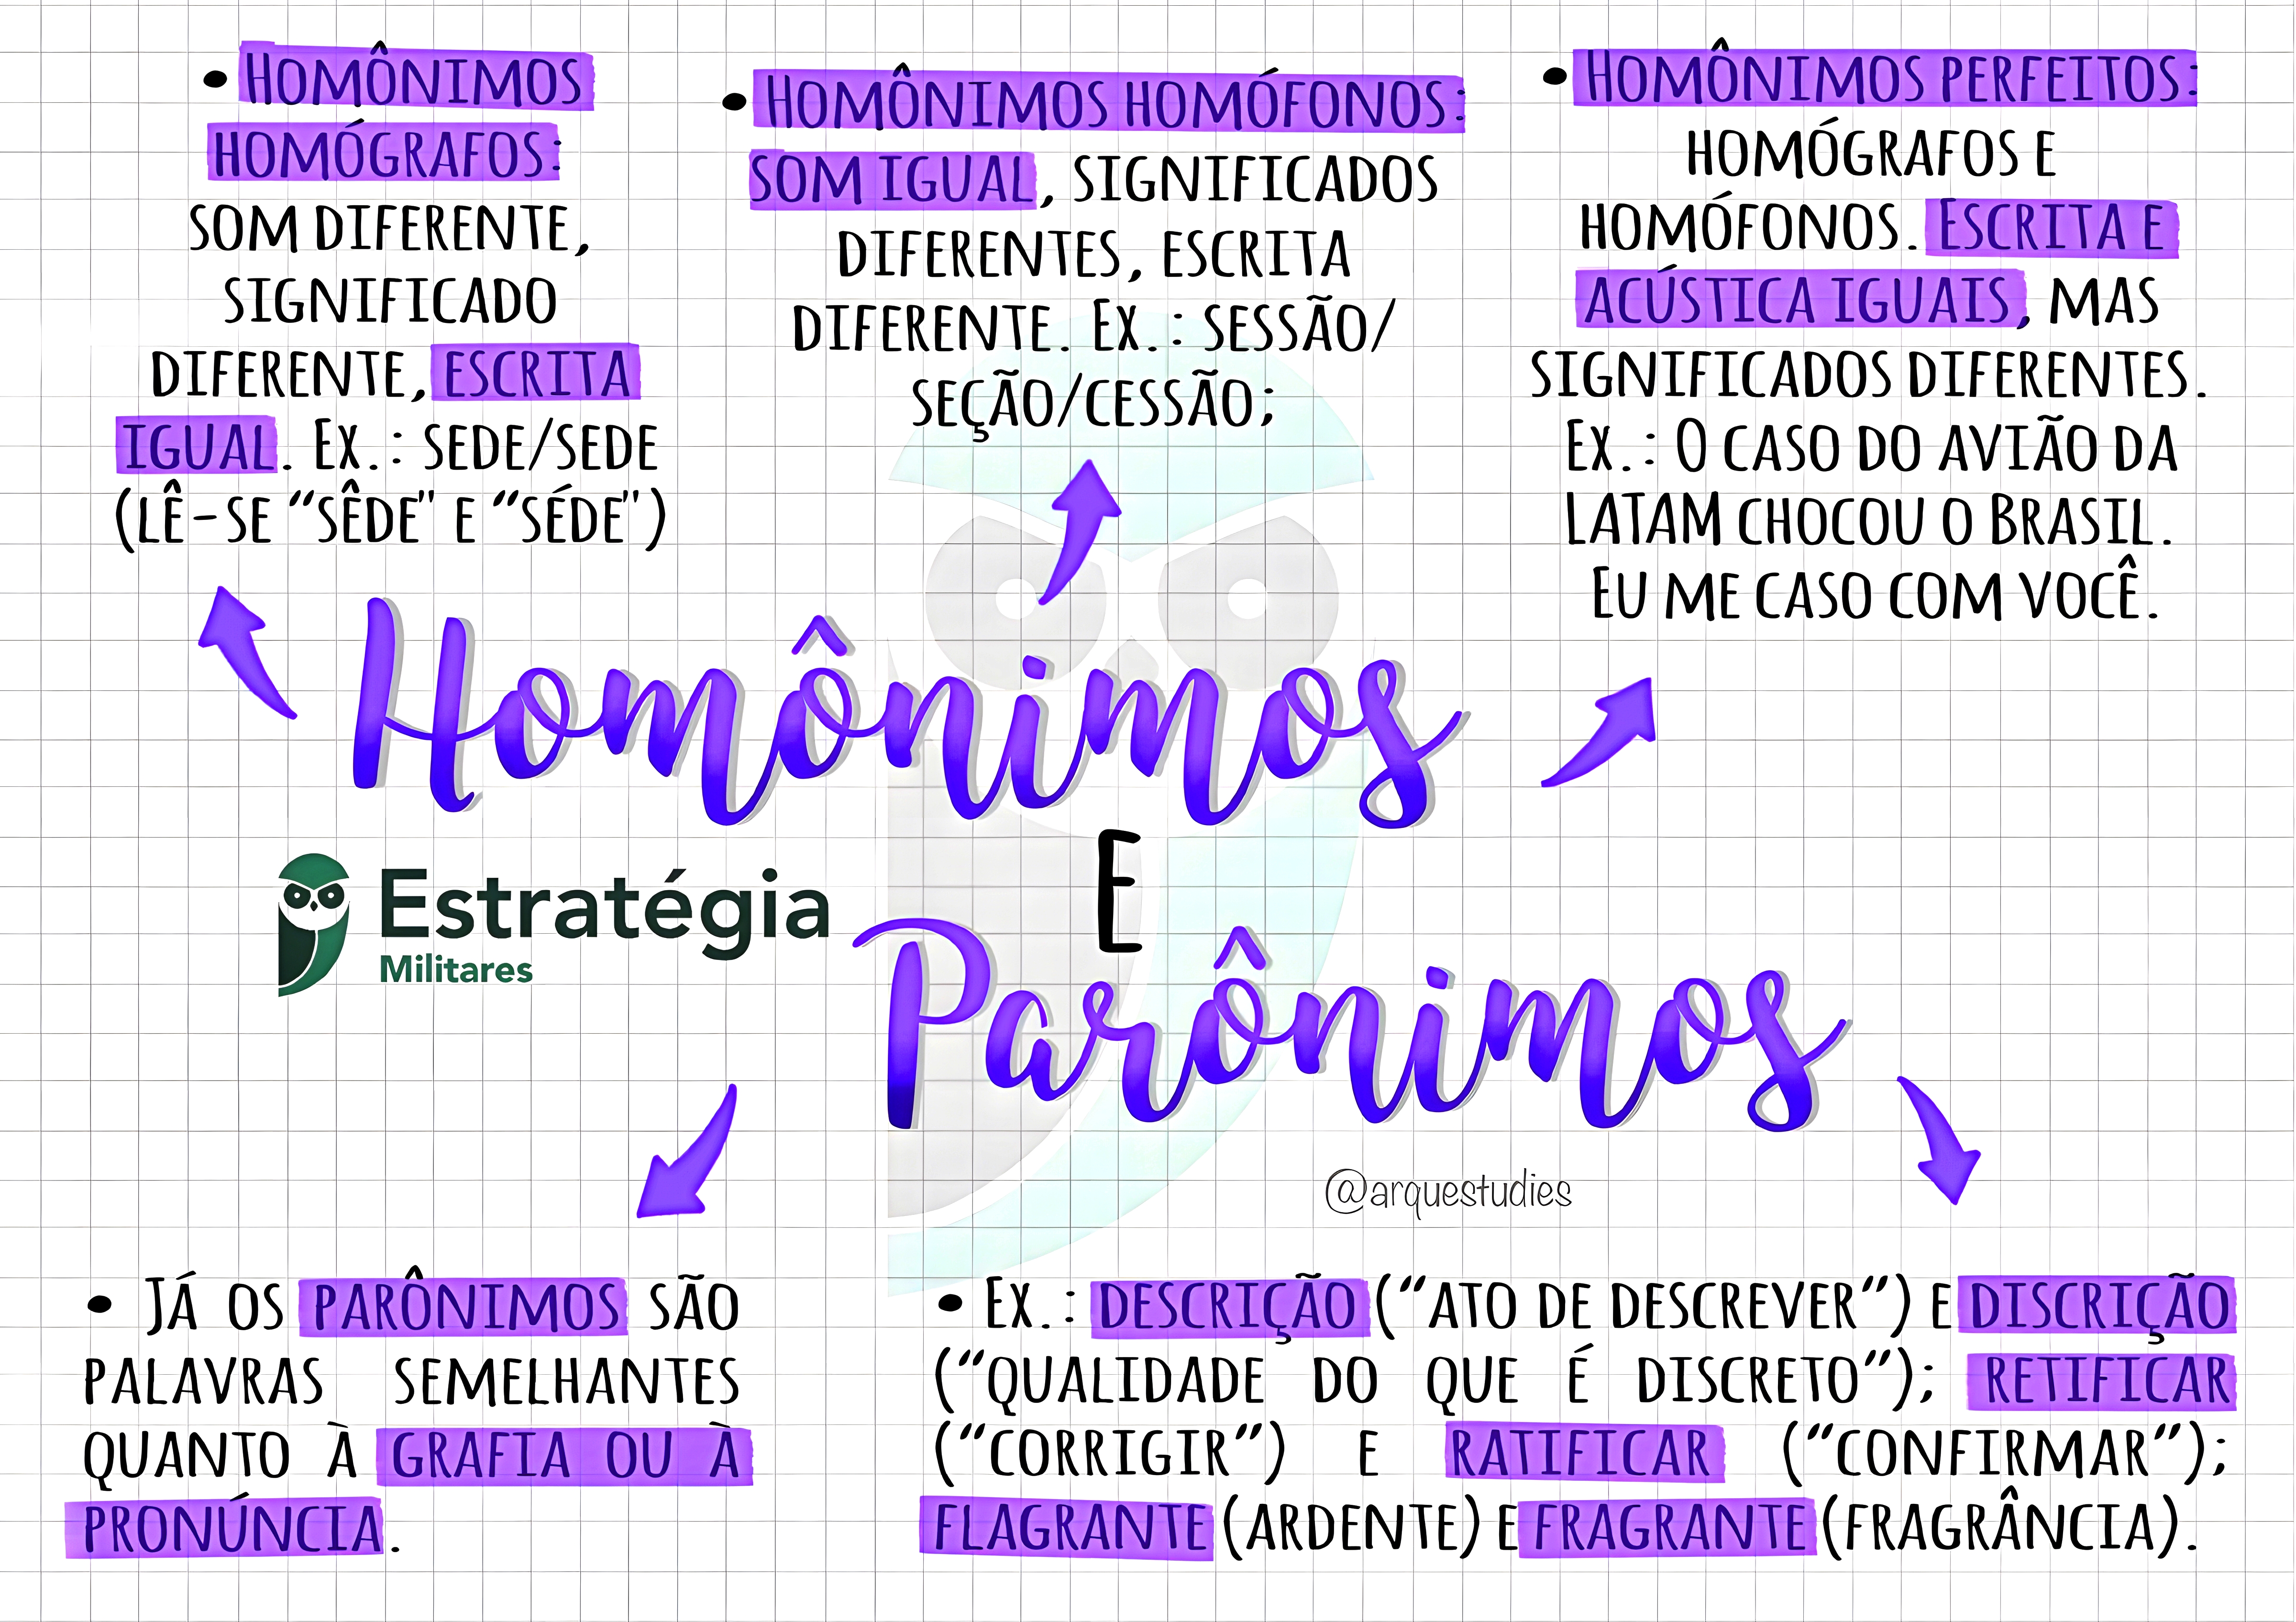 • Homônimos
homógrafos:
som diferente,
significado
diferente, escrita
igual. Ex.: sede/sede
(lê-se “sêde" e “séde")
• Homônimos homófonos:
som igual, significados
diferentes, escrita
diferente. Ex.: sessão/
seção/cessão;
• Homônimos perfeitos:
homógrafos e
homófonos. Escrita e
acústica iguais, mas
significados diferentes.
Ex.: O caso do avião da
LATAM chocou o Brasil.
Eu me caso com você.
Homônimos
E
Parônimos
Estratégia
Militares
@arquestudies
• Já os parônimos são
palavras semelhantes
quanto à grafia ou à
pronúncia.
• Ex.: descrição (“ato de descrever”) e discrição
(“qualidade do que é discreto”); retificar
(“corrigir”) e ratificar (“confirmar”);
flagrante (ardente) e fragrante (fragrância).